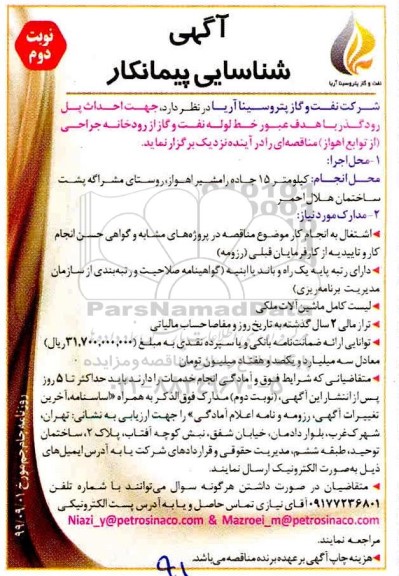 آگهی
شناسایی پیمانکار
نوبت
دوم
نفت و گاز پتروسینا آریا
شرکت نفت و گاز پتروسینا آریا در نظر دارد، جهت احداث پل
رودگذر با هدف عبور خط لوله نفت و گاز از رودخانه جراحی
(از توابع اهواز) مناقصه‌ای را در آینده نزدیک برگزار نماید.
۱-محل اجرا:
محل انجام: کیلومتر ۱۵ جاده رامشیر اهواز، روستای مشراگه پشت
ساختمان هلال احمر
۲-مدارک مورد نیاز:
اشتغال به انجام کار موضوع مناقصه در پروژه‌های مشابه و گواهی حسن انجام
کار و تاییدیه از کارفرمایان قبلی (رزومه)
دارای رتبه پایه یک راه و باند یا ابنیه (گواهینامه صلاحیت و رتبه‌بندی از سازمان
مدیریت برنامه‌ریزی)
لیست کامل ماشین آلات ملکی
تراز مالی ۲ سال گذشته به تاریخ روز و مفاصا حساب مالیاتی
توانایی ارائه ضمانت‌نامه بانکی و یا سپرده نقدی به مبلغ (۳۱,۷۰۰,۰۰۰,۰۰۰ ریال)
معادل سه میلیارد و یکصد و هفتاد میلیون تومان
متقاضیانی که شرایط فوق و آمادگی انجام خدمات را دارند باید حداکثر تا ۵ روز
پس از انتشار این آگهی، (نوبت دوم) مدارک فوق الذکر به همراه «اساسنامه، آخرین
تغییرات آگهی، رزومه و نامه اعلام آمادگی» را جهت ارزیابی به نشانی: تهران،
شهرک غرب، بلوار دادمان، خیابان شفق، نبش کوچه آفتاب، پلاک ۲، ساختمان
توحید، طبقه ششم، مدیریت حقوقی و قراردادهای شرکت یا به آدرس ایمیل‌های
ذیل به صورت الکترونیک ارسال نمایند.
متقاضیان در صورت داشتن هرگونه سوال می‌توانند با شماره تلفن
۰۹۱۷۷۲۳۶۸۰۱ آقای نیازی تماس حاصل و یا به آدرس پست الکترونیکی
Niazi_y@petrosinaco.com & Mazroei_m@petrosinaco.com
مراجعه نمایند.
هزینه چاپ آگهی بر عهده برنده مناقصه می‌باشد.
روزنامه جام جم مورخ ۹۹/۰۹/۰۱
ParsNamadData